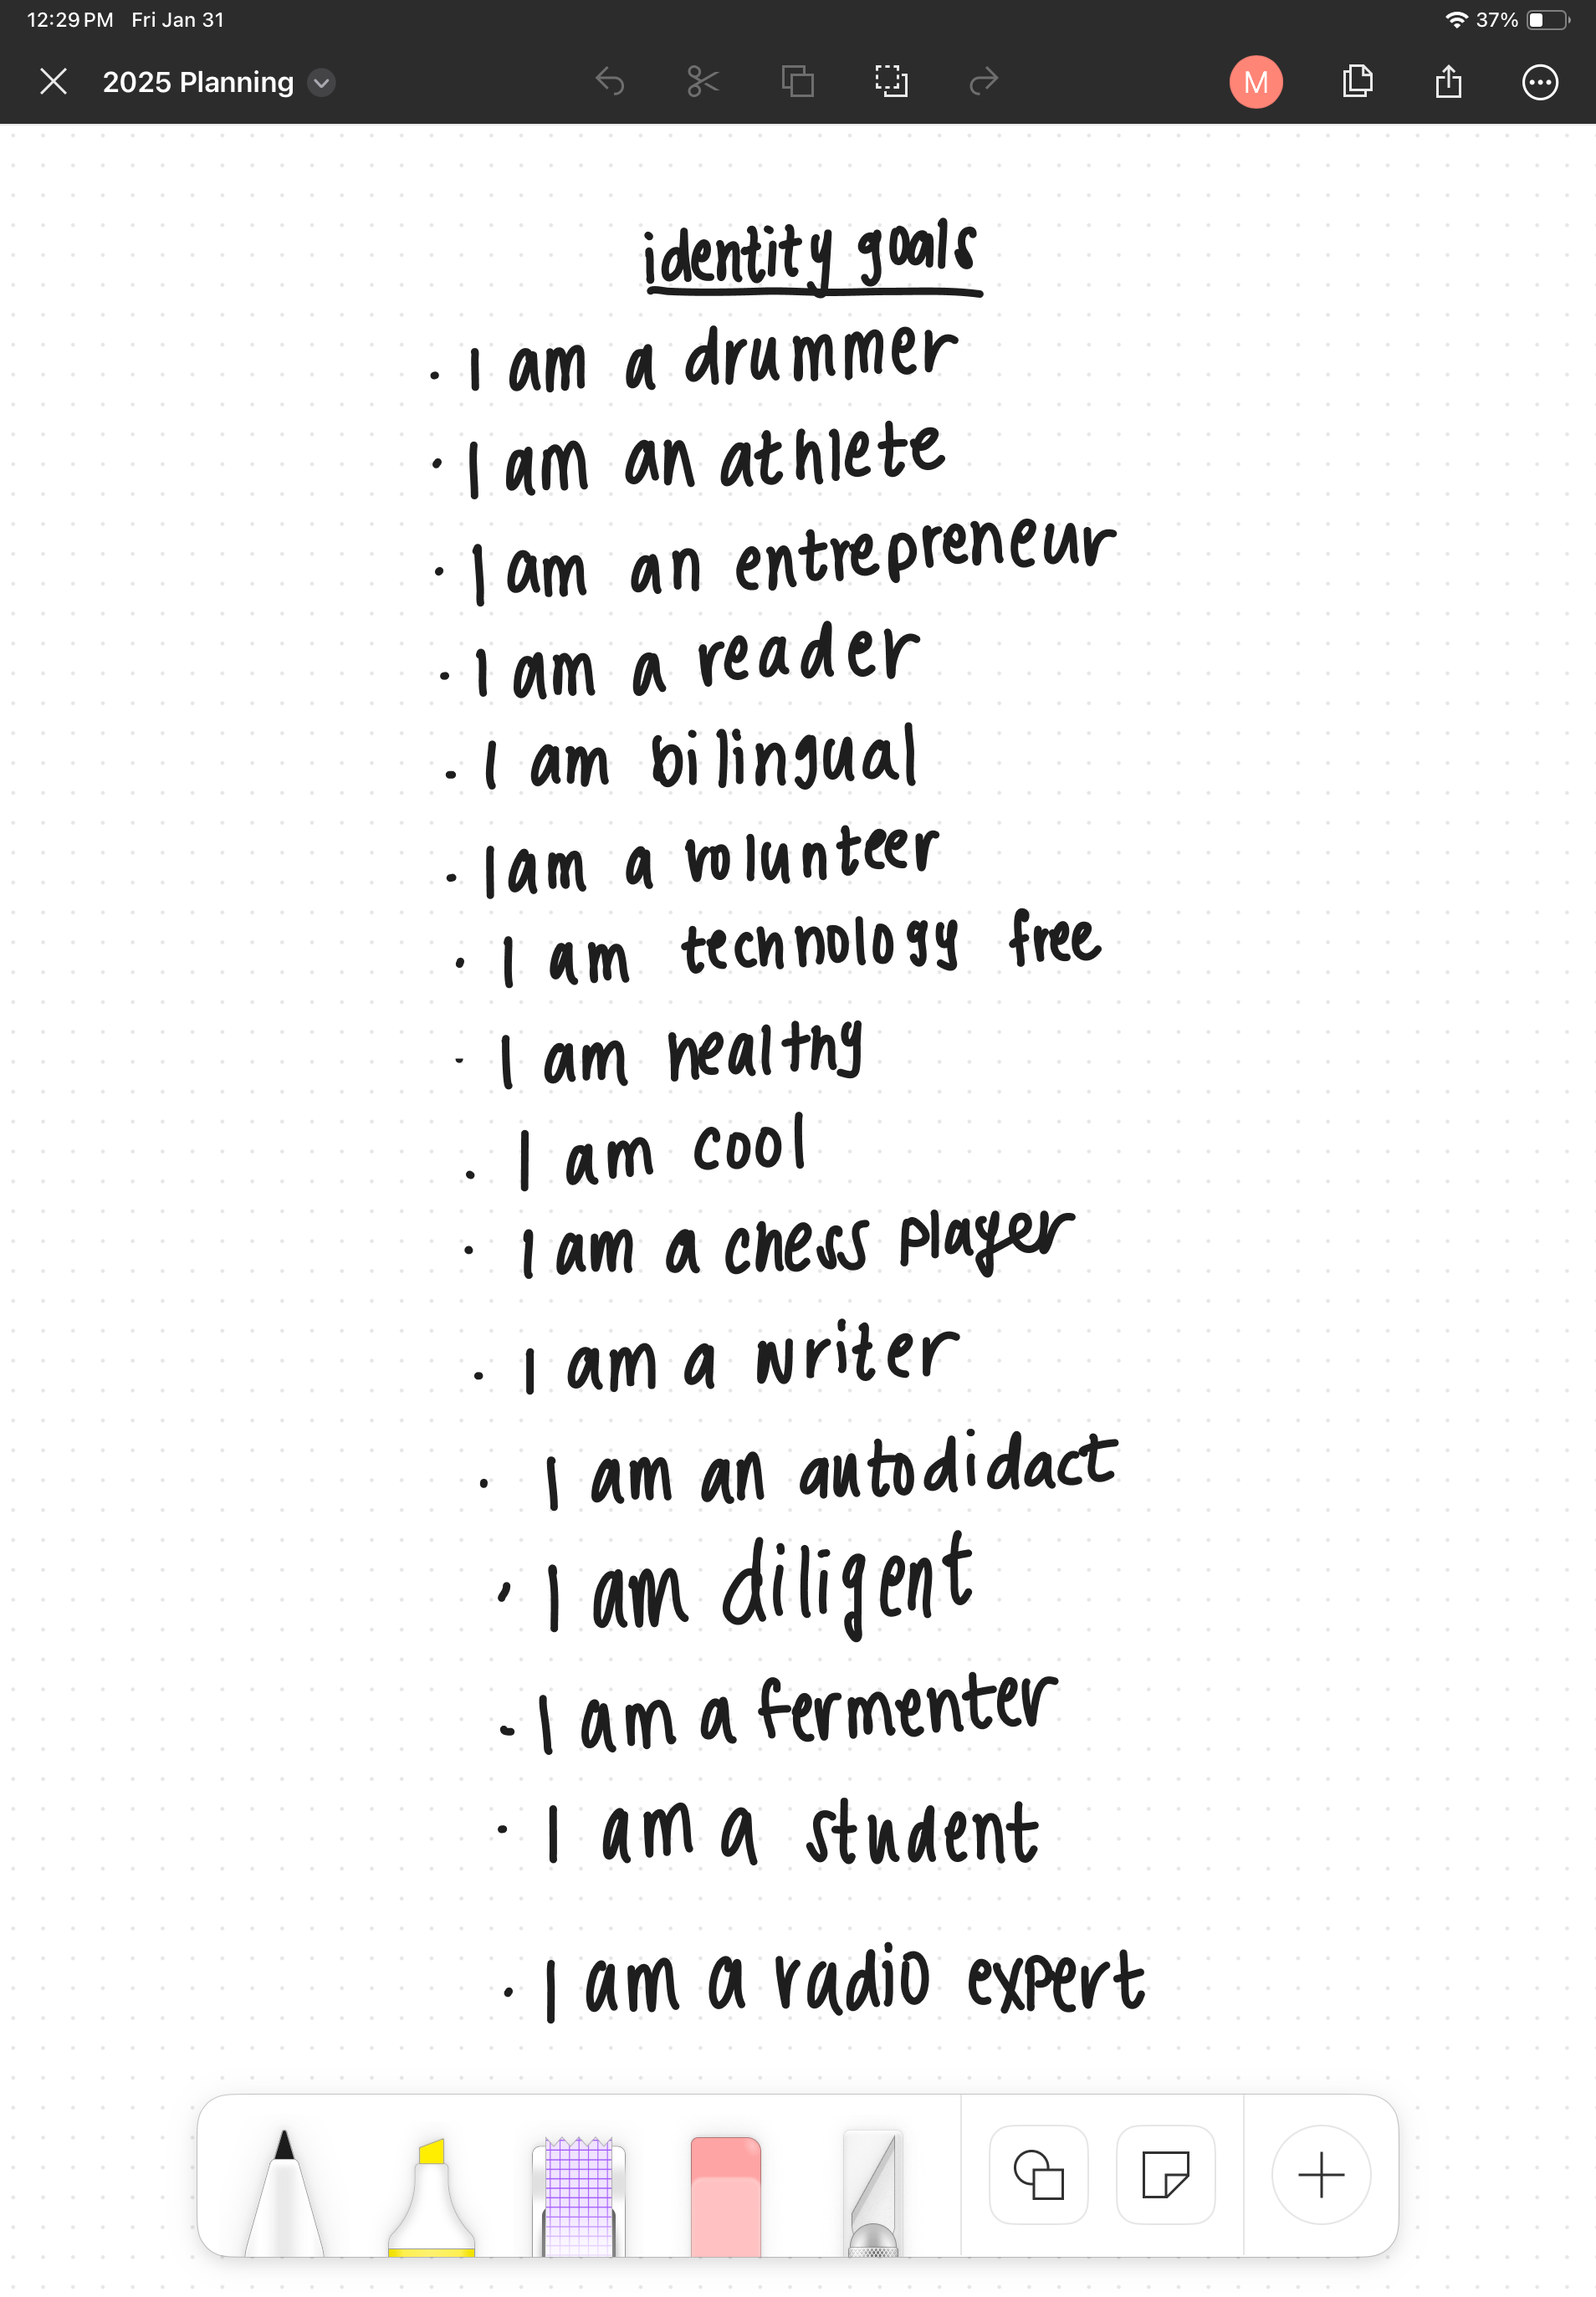 12:29 PM Fri Jan 31 37%
2025 Planning M
identity goals
· I am a drummer
· I am an athlete
· I am an entrepreneur
· I am a reader
· I am bilingual
· I am a volunteer
· I am technology free
· I am healthy
· I am cool
· I am a chess player
· I am a writer
· I am an autodidact
· I am diligent
· I am a fermenter
· I am a student
· I am a radio expert